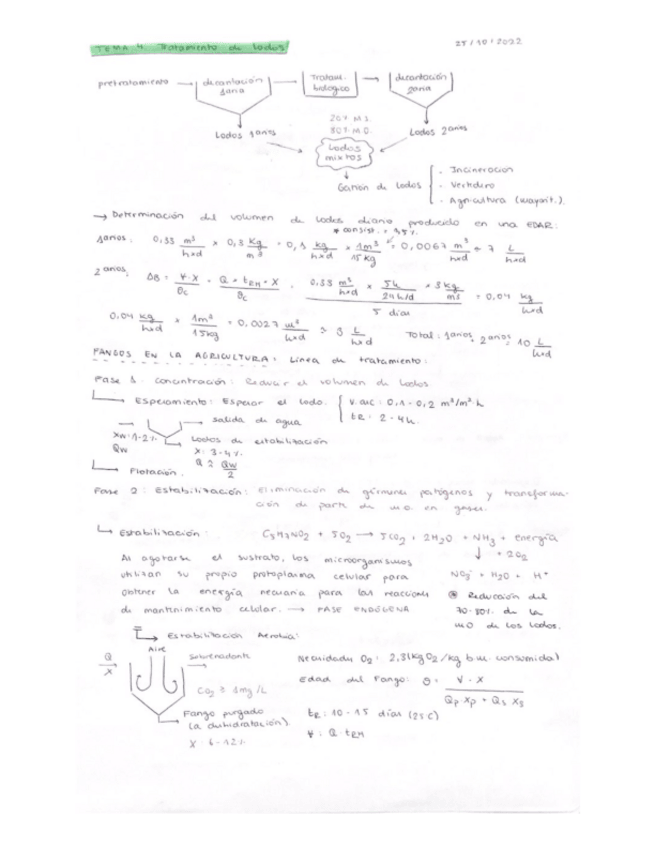 TEMA 4. Tratamiento de lodos
25/10/2022
pretratamiento → decantación 1aria → Tratam. biologico → decantación 2aria
20% M.S.
80% M.O.
Lodos 1arios
Lodos 2arios
Lodos mixtos
Gestión de lodos
- Incineración
- Vertedero
- Agricultura (mayorit.)
→ Determinación del volumen de lodos diario producido en una EDAR:
* consist. = 1,5%
1arios: 0,33 m³/hxd × 0,3 kg/m³ = 0,1 kg/hxd × 1m³/15kg = 0,0067 m³/hxd ≈ 7 L/hxd
2arios: ΔB = V·X/θc = Q·tRH·X/θc = 0,33 m³/hxd × 5h/24h/d × 3kg/m³ / 5 días = 0,04 kg/hxd
0,04 kg/hxd × 1m³/15kg = 0,0027 m³/hxd ≈ 3 L/hxd Total: 1arios + 2arios = 10 L/hxd
FANGOS EN LA AGRICULTURA: Línea de tratamiento:
Fase 1. concentración: Reducir el volumen de lodos
Espesamiento: Espesar el lodo.
V.asc: 0,1 - 0,2 m³/m²·h
tR: 2 - 4h.
salida de agua
Xw: 1-2%
Qw
Lodos de estabilización
X: 3-4%
Q ≈ Qw/2
Flotación.
Fase 2: Estabilización: Eliminación de gérmenes patógenos y transforma-
ción de parte de m.o. en gases.
Estabilización: C5H7NO2 + 5O2 → 5CO2 + 2H2O + NH3 + energía
+ 2O2
NO3⁻ + H2O + H⁺
Al agotarse el sustrato, los microorganismos
utilizan su propio protoplasma celular para
obtener la energía necesaria para las reacciones
de mantenimiento celular. → FASE ENDÓGENA
Reducción del
70-80% de la
MO de los lodos.
Estabilización Aerobia:
Aire
Q
X
Sobrenadante
CO2 ≈ 1mg/L
Fango purgado
(a deshidratación)
X: 6-12%
Necesidades O2: 2,3 (kg O2/kg b.m. consumida)
Edad del Fango: θ = V·X / Qp Xp + Qs Xs
tR: 10 - 15 días (25C)
V: Q·tRH